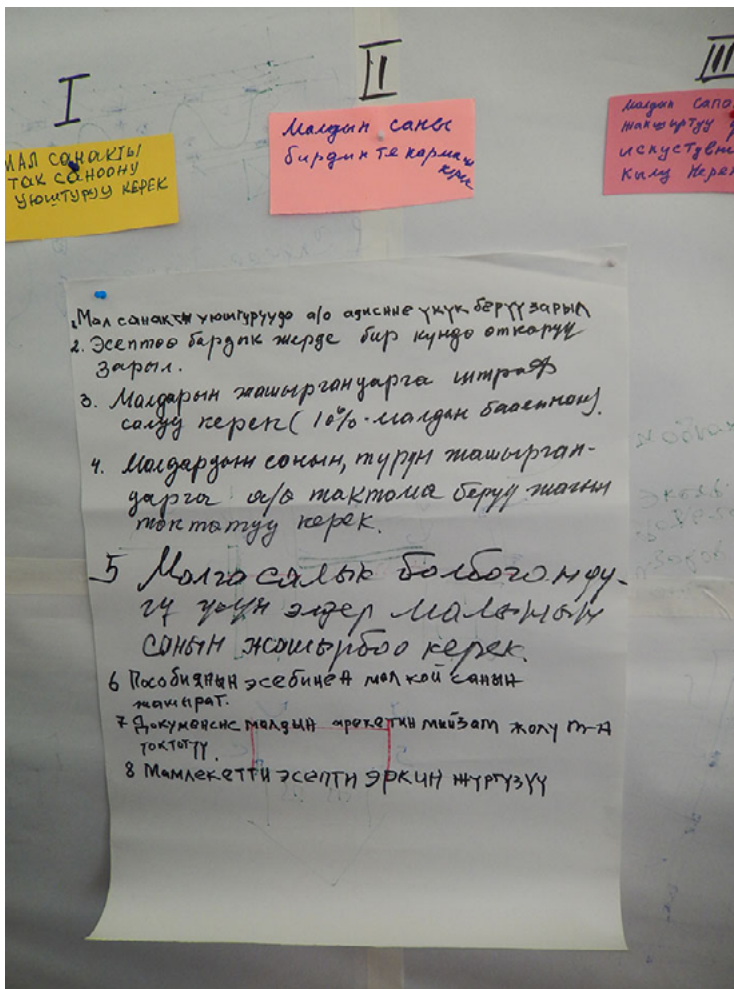 I
II
III
МАЛ санакты
так саноону
уюштуруу керек
Малдын саны
бирдин те
Малдын
жакшыртуу
кылу
1. Мал санакты уюштурууда а/о адисине укук берүү зарыл
2. Эсептөө бардык жерде бир күндө өткөрүү
зарыл.
3. Малдарын жашыргандарга штраф
салуу керек (10% малдын баасынан).
4. Малдардын санын, түрүн жашырган-
дарга а/о тактома берүү жагын
токтотуу керек.
5 Малга салык болбогонду-
гу үчүн элдер малынын
санын жашырбоо керек.
6 Пособиянын эсебинен мал кой санын
жашырат.
7 малдын аракетин мыйзам жолу м-н
токтотуу.
8 Мамлекетти эсепти эркин жүргүзүү